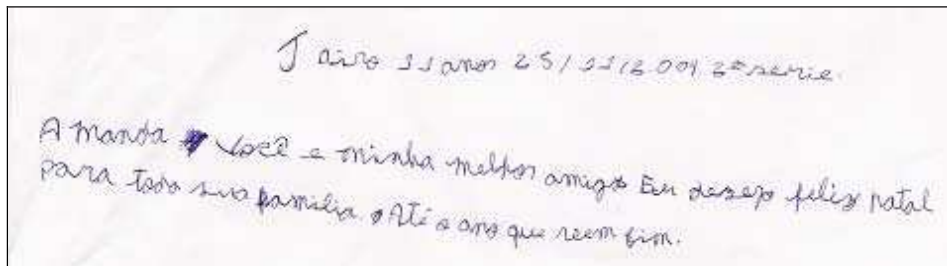 Jairo 11 anos 25/11/2004 2ª serie.
A manda você e minha melhor amigo Eu desejo feliz natal
para toda sua familia. Até o ano que reem fim.